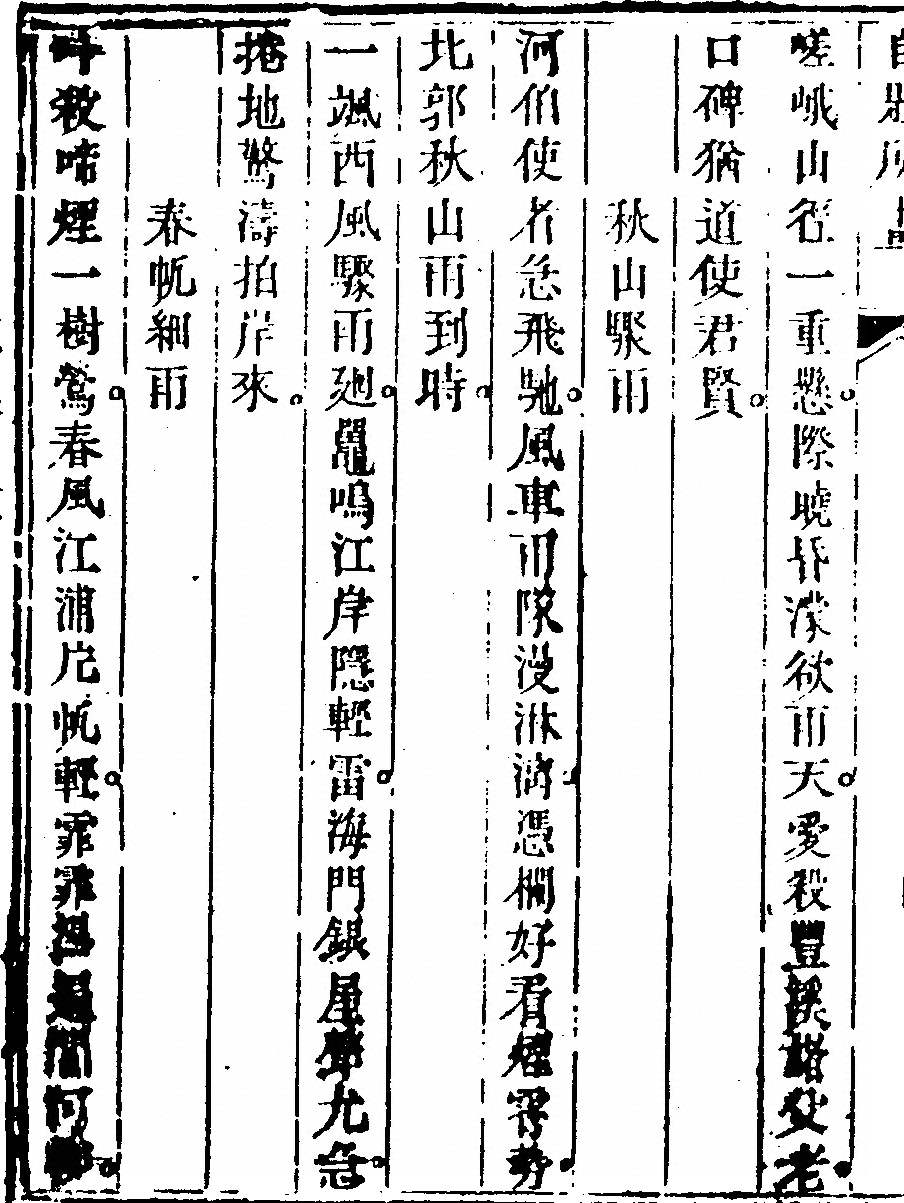 嵯峨山徑一重懸際曉昏濛欲雨天愛殺豐溪諸父老
口碑猶道使君賢
秋山驟雨
河伯使者急飛馳風車雨隊漫淋漓憑欄好看煙雲勢
北郭秋山雨到時
一颯西風驟雨廻鼉鳴江岸隱輕雷海門銀屋聲尤急
捲地驚濤拍岸來
春帆細雨
啼煙一樹鶯春風江浦片帆輕霏霏